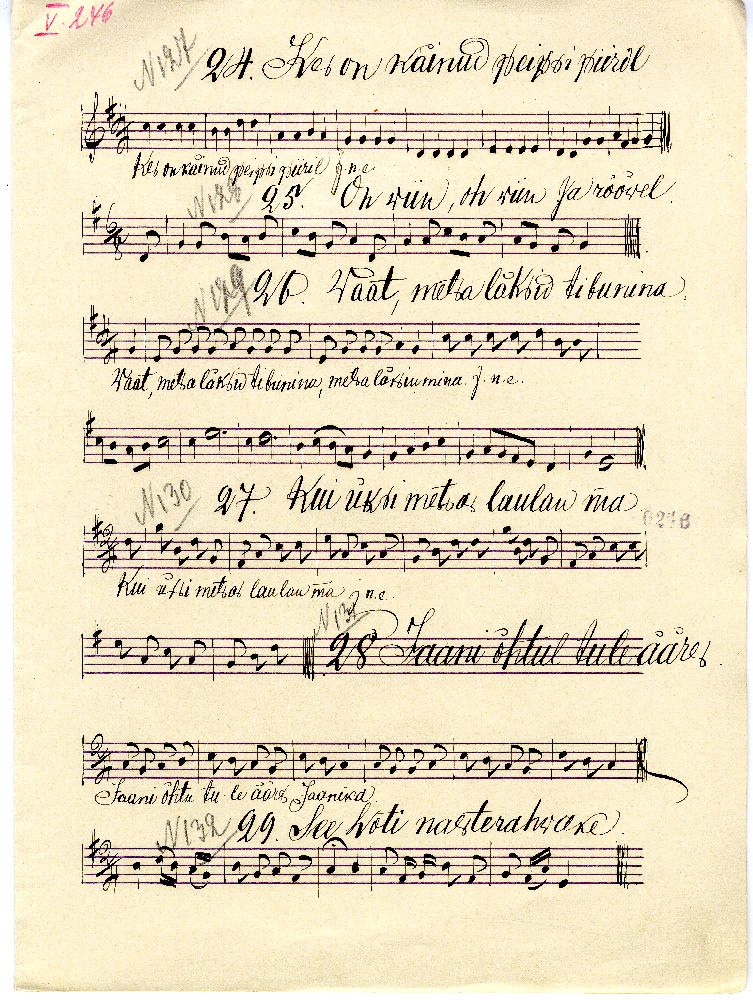 V. 246
N 127
24. Kes on käinud peipsi piiril
Kes on käinud peipsi piiril j.n.e.
N 128
25. Oh wiin, oh wiin Ja röövel.
N 129
26. Vaat, metsa läksid tibunina.
Vaat, metsa läksid tibunina, metsa läksin mina. j.n.e.
N 130
27. Kui üksi metsas laulan ma
0246
Kui üksi metsas laulan ma j.n.e.
N 131
28 Jaani õhtul tule ääres.
Jaani õhtu tu le ääres Jaanika
N 132
29. See Koti naesterahwake.